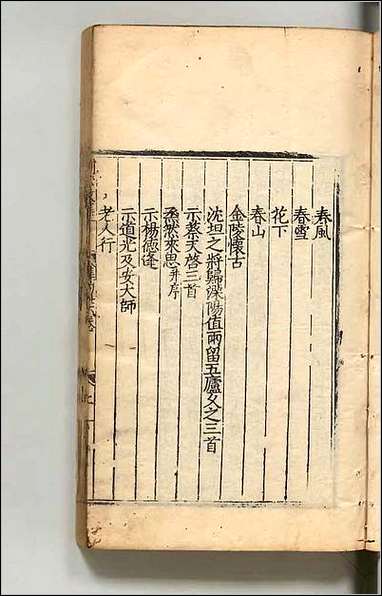 春風
春雪
花下
春山
金陵懷古
沈坦之將歸溧陽值雨留吾廬久之三首
示蔡天啓三首
丞然來思并序
示楊德逢
示道光及安大師
老人行